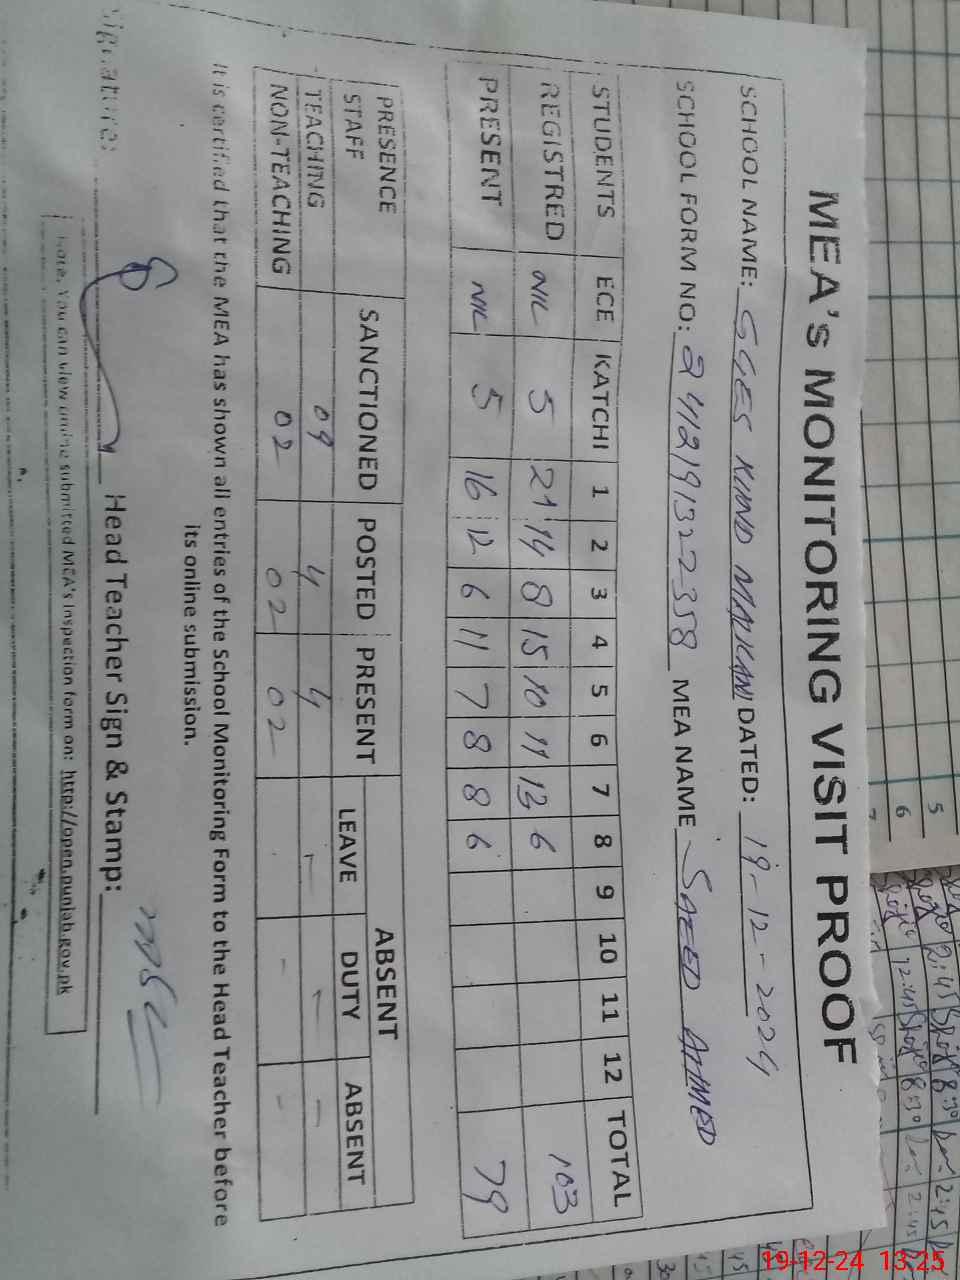 MEA's MONITORING VISIT PROOF
SCHOOL NAME: GGES KUND MALKANI DATED: 19-12-2024
SCHOOL FORM NO: 2412191322358 MEA NAME SAEED AHMED
STUDENTS ECE KATCHI 1 2 3 4 5 6 7 8 9 10 11 12 TOTAL
REGISTRED NIL 5 21 14 8 15 10 11 13 6 103
PRESENT NIL 5 16 12 6 11 7 8 8 6 79
PRESENCE STAFF SANCTIONED POSTED PRESENT ABSENT
LEAVE DUTY ABSENT
TEACHING 09 4 4 - - -
NON-TEACHING 02 02 02 - -
It is certified that the MEA has shown all entries of the School Monitoring Form to the Head Teacher before
its online submission.
Signature: Head Teacher Sign & Stamp:
Note. You can view online submitted MEA's Inspection form on: http://open.punjab.gov.pk
5
6
7
2:45 8:30 2:45
12:45 8:30 2:45
19-12-24 13:25